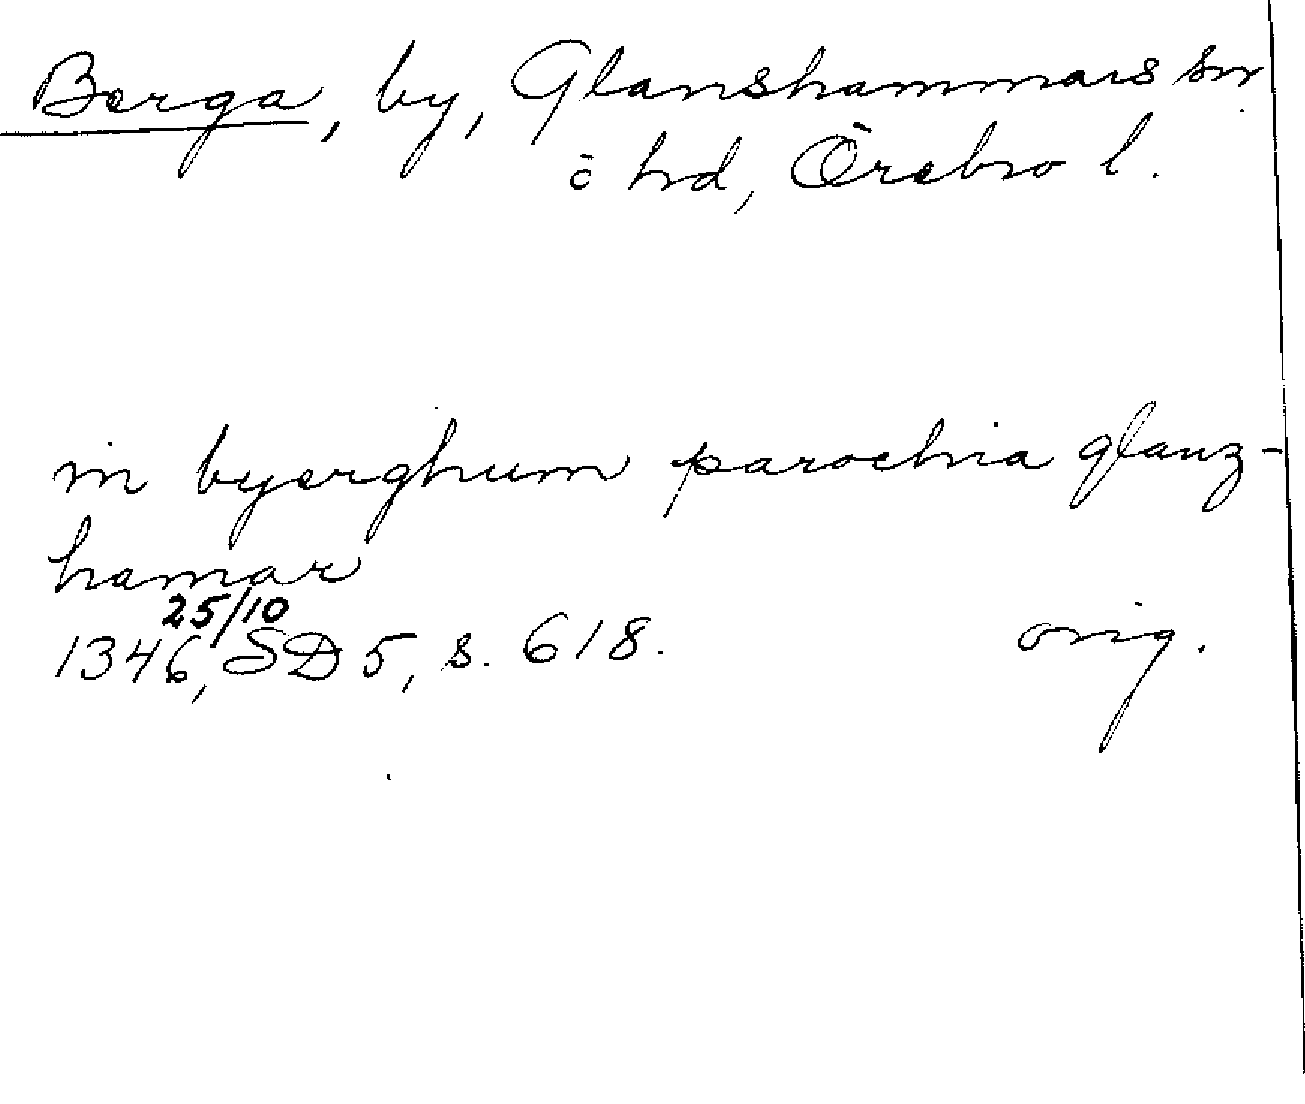 Berga, by, Glanshammars sn
o hd, Örebro l.
in byerghum parochia glanz-
hamar
25/10
1346, SD 5, s. 618. orig.